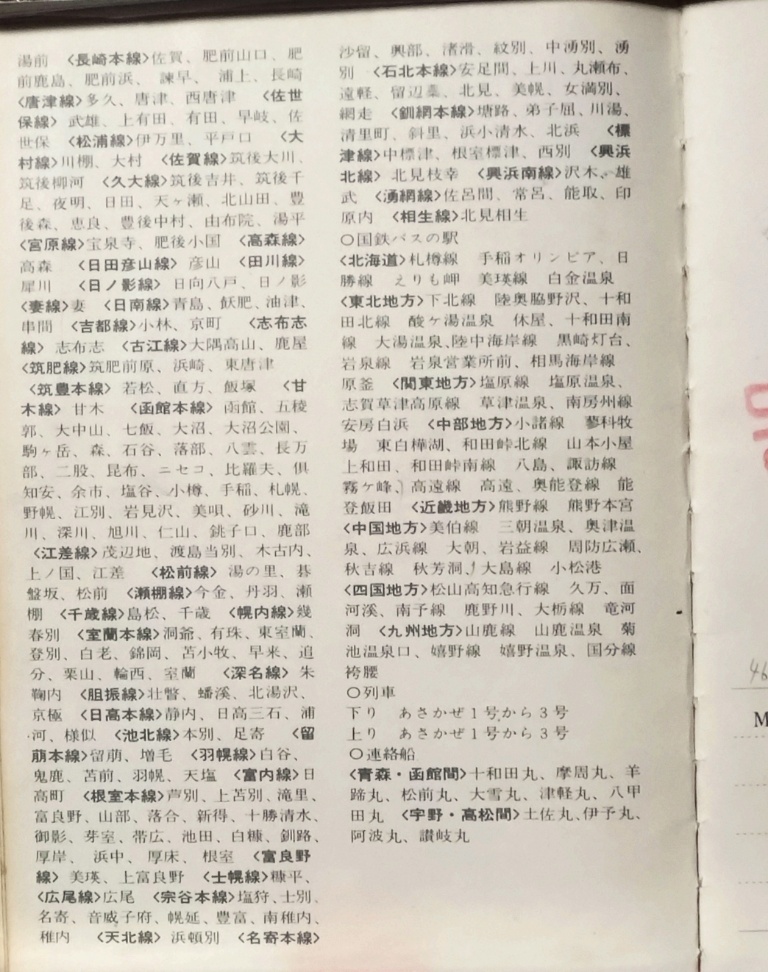 湯前　〈長崎本線〉佐賀、肥前山口、肥
前鹿島、肥前浜、諫早、浦上、長崎
〈唐津線〉多久、唐津、西唐津　〈佐世
保線〉武雄、上有田、有田、早岐、佐
世保　〈松浦線〉伊万里、平戸口　〈大
村線〉川棚、大村　〈佐賀線〉筑後大川、
筑後柳河　〈久大線〉筑後吉井、筑後千
足、夜明、日田、天ヶ瀬、北山田、豊
後森、恵良、豊後中村、由布院、湯平
〈宮原線〉宝泉寺、肥後小国　〈高森線〉
高森　〈日田彦山線〉彦山　〈田川線〉
犀川　〈日ノ影線〉日向八戸、日ノ影
〈妻線〉妻　〈日南線〉青島、飫肥、油津、
串間　〈吉都線〉小林、京町　〈志布志
線〉志布志　〈古江線〉大隅高山、鹿屋
〈筑肥線〉筑肥前原、浜崎、東唐津
〈筑豊本線〉若松、直方、飯塚　〈甘
木線〉甘木　〈函館本線〉函館、五稜
郭、大中山、七飯、大沼、大沼公園、
駒ヶ岳、森、石谷、落部、八雲、長万
部、二股、昆布、ニセコ、比羅夫、倶
知安、余市、塩谷、小樽、手稲、札幌、
野幌、江別、岩見沢、美唄、砂川、滝
川、深川、旭川、仁山、銚子口、鹿部
〈江差線〉茂辺地、渡島当別、木古内、
上ノ国、江差　〈松前線〉湯の里、碁
盤坂、松前　〈瀬棚線〉今金、丹羽、瀬
棚　〈千歳線〉島松、千歳　〈幌内線〉幾
春別　〈室蘭本線〉洞爺、有珠、東室蘭、
登別、白老、錦岡、苫小牧、早来、追
分、栗山、輪西、室蘭　〈深名線〉朱
鞠内　〈胆振線〉壮瞥、蟠溪、北湯沢、
京極　〈日高本線〉静内、日高三石、浦
河、様似　〈池北線〉本別、足寄　〈留
萠本線〉留萠、増毛　〈羽幌線〉臼谷、
鬼鹿、苫前、羽幌、天塩　〈富内線〉日
高町　〈根室本線〉芦別、上芦別、滝里、
富良野、山部、落合、新得、十勝清水、
御影、芽室、帯広、池田、白糠、釧路、
厚岸、浜中、厚床、根室　〈富良野
線〉美瑛、上富良野　〈士幌線〉糠平、
〈広尾線〉広尾　〈宗谷本線〉塩狩、士別、
名寄、音威子府、幌延、豊富、南稚内、
稚内　〈天北線〉浜頓別　〈名寄本線〉
沙留、興部、渚滑、紋別、中湧別、湧
別　〈石北本線〉安足間、上川、丸瀬布、
遠軽、留辺蘂、北見、美幌、女満別、
網走　〈釧網本線〉塘路、弟子屈、川湯、
清里町、斜里、浜小清水、北浜　〈標
津線〉中標津、根室標津、西別　〈興浜
北線〉北見枝幸　〈興浜南線〉沢木、雄
武　〈湧網線〉佐呂間、常呂、能取、卯
原内　〈相生線〉北見相生
〇国鉄バスの駅
〈北海道〉札樽線　手稲オリンピア、日
勝線　えりも岬　美瑛線　白金温泉
〈東北地方〉下北線　陸奥脇野沢、十和
田北線　酸ヶ湯温泉　休屋、十和田南
線　大湯温泉、陸中海岸線　黒崎灯台、
岩泉線　岩泉営業所前、相馬海岸線
原釜　〈関東地方〉塩原線　塩原温泉、
志賀草津高原線　草津温泉、南房州線
安房白浜　〈中部地方〉小諸線　蓼科牧
場　東白樺湖、和田峠北線　山本小屋
上和田、和田峠南線　八島、諏訪線
霧ヶ峰、高遠線　高遠、奥能登線　能
登飯田　〈近畿地方〉熊野線　熊野本宮
〈中国地方〉美伯線　三朝温泉、奥津温
泉、広浜線　大朝、岩益線　周防広瀬、
秋吉線　秋芳洞、大島線　小松港
〈四国地方〉松山高知急行線　久万、面
河溪、南予線　鹿野川、大栃線　竜河
洞　〈九州地方〉山鹿線　山鹿温泉　菊
池温泉口、嬉野線　嬉野温泉、国分線
袴腰
〇列車
下り　あさかぜ1号から3号
上り　あさかぜ1号から3号
〇連絡船
〈青森・函館間〉十和田丸、摩周丸、羊
蹄丸、松前丸、大雪丸、津軽丸、八甲
田丸　〈宇野・高松間〉土佐丸、伊予丸、
阿波丸、讃岐丸
46
M